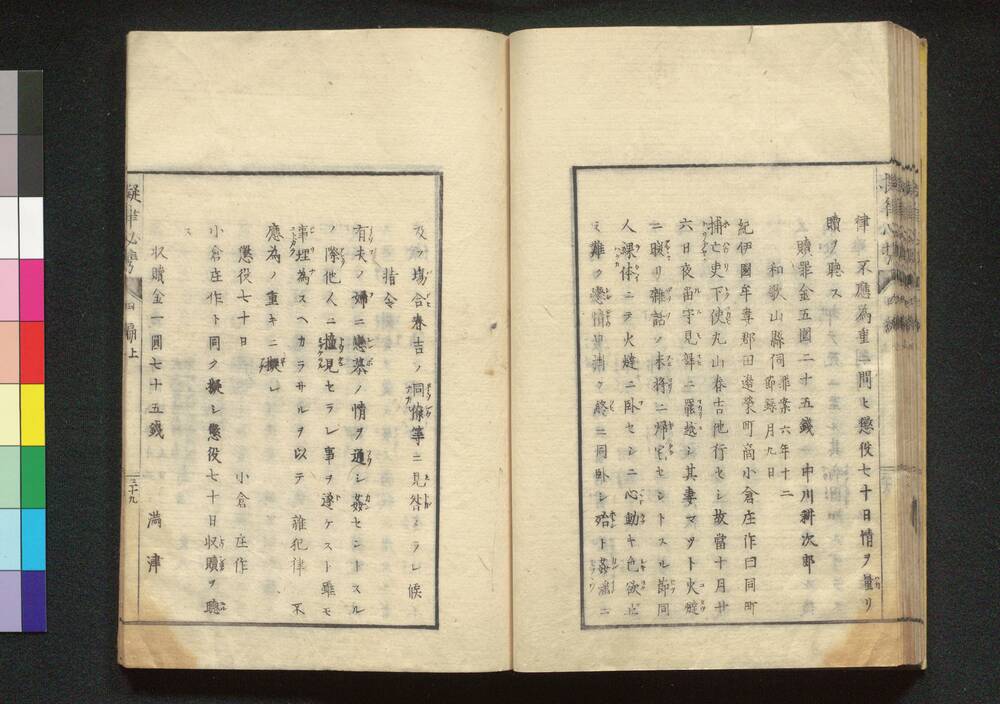 律 不應為重ニ問ヒ懲役七十日情ヲ量リ
贖ヲ聴ス
贖罪金五圓二十五錢 中川耕次郎
和歌山縣伺 罪案六年十二
節録月九日
紀伊國牟婁郡田邉榮町商小倉庄作曰同町
捕亡吏下使丸山春吉他行セシ故當十月廿
六日夜留守見舞ニ罷越シ其妻マツト火燵
ニ暖リ雑話ノ末將ニ帰宅セントスル節同
人裸体ニテ火燵ニ卧セシニ心動キ色欲止
メ難ク戀情 淵ク終ニ同卧シ殆ト姦濡ニ
及フ場合春吉ノ同僚等ニ見咎メラレ候
指令
有夫ノ婦ニ戀慕ノ情ヲ通シ姦セントスル
ノ際他人ニ撞見セラレ事ヲ遂ケスト雖モ
事理為スヘカラサルヲ以テ 雜犯律 不
應為ノ重キニ擬シ
懲役七十日 小倉 庄作
小倉庄作ト同ク擬シ懲役七十日収贖ヲ聴
ス
収贖金一圓七十五錢 満 津
擬律必携 四編上 三十九